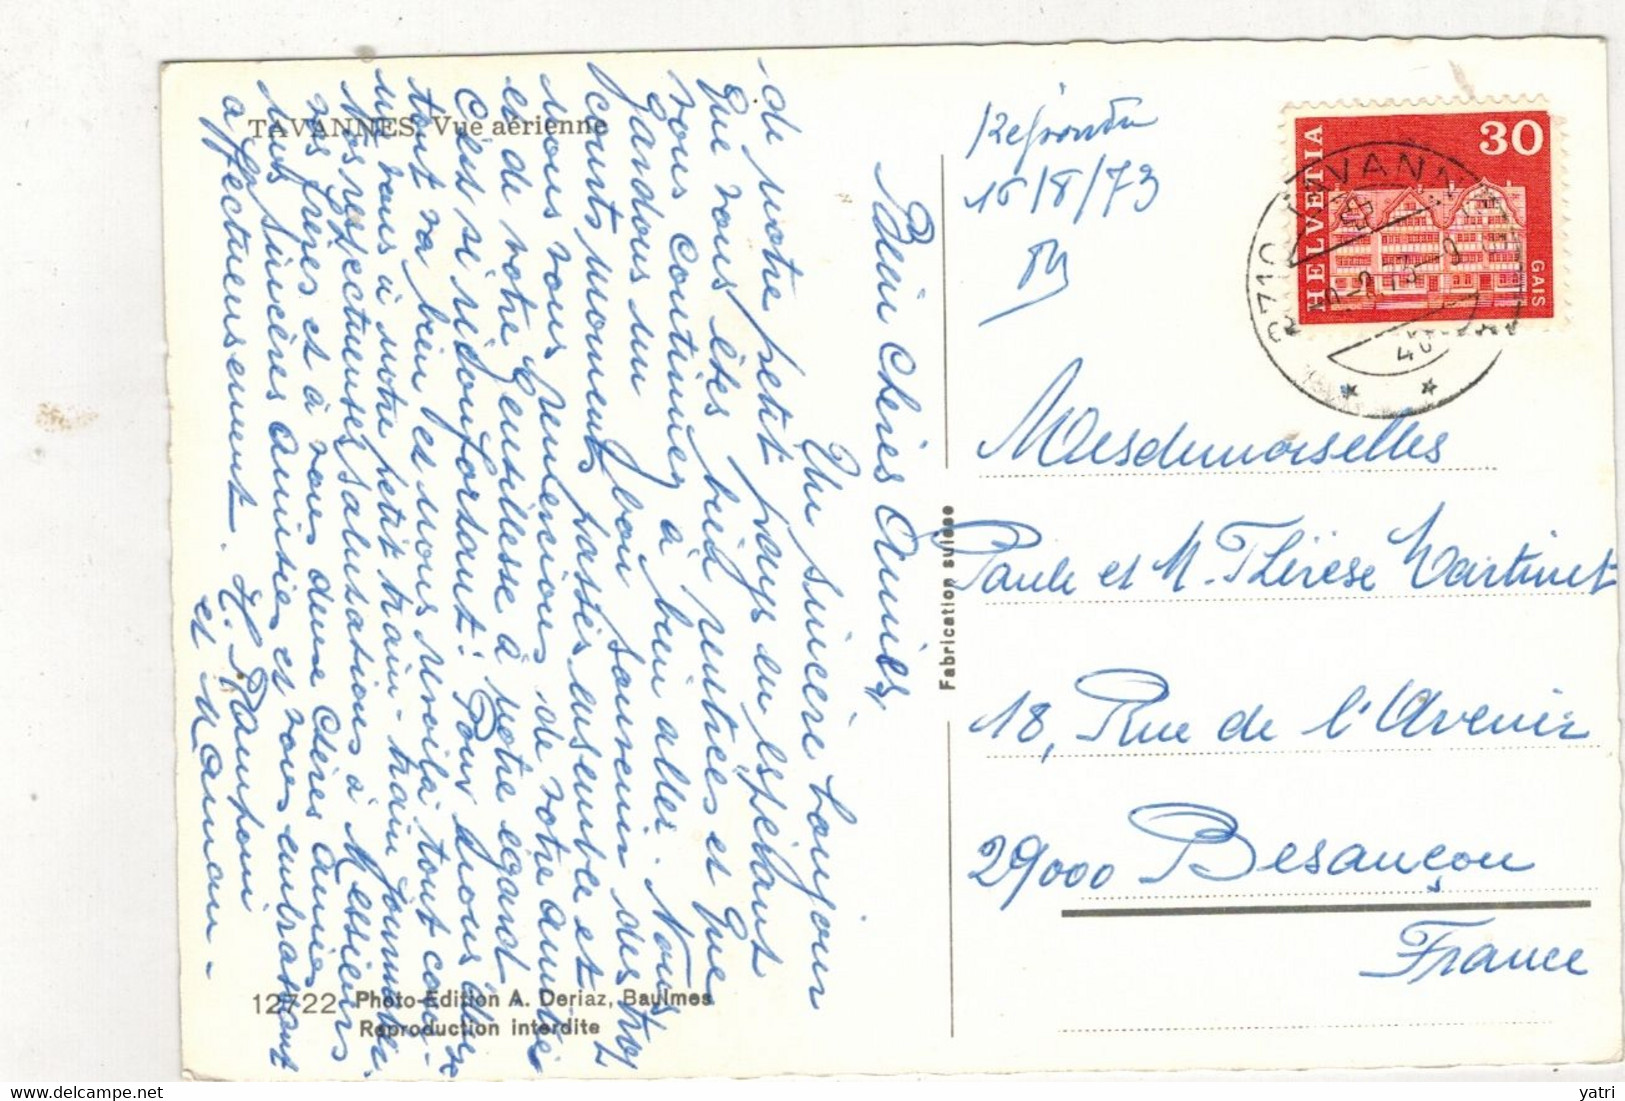 TAVANNES. Vue aérienne
Bien Chères Amies,
Un sincère bonjour
de notre petit pays en espérant
que vous êtes bien rentrées et que
vous continuez à bien aller. Nous
gardons un bon souvenir des trop
courts moments passés ensemble et
nous vous remercions de votre amitié
et de votre gentillesse à notre égard.
C'est si réconfortant! Pour nous deux
tout va bien et nous voilà tout com-
me vous à notre petit train-train journalier.
Nos respectueuses salutations à Messieurs
vos frères et à vous deux Chères Amies
nos sincères amitiés et vous embrassons
affectueusement.
et Maman-
12722 Photo-Edition A. Deriaz, Baulmes
Reproduction interdite
Fabrication suisse
Répondu
16/8/73
HELVETIA
30
GAIS
2710 TAVANNES
Mesdemoiselles
Paule et M. Thérèse Martinet
18, Rue de l'Avenir
29000 Besançon
France
yatri